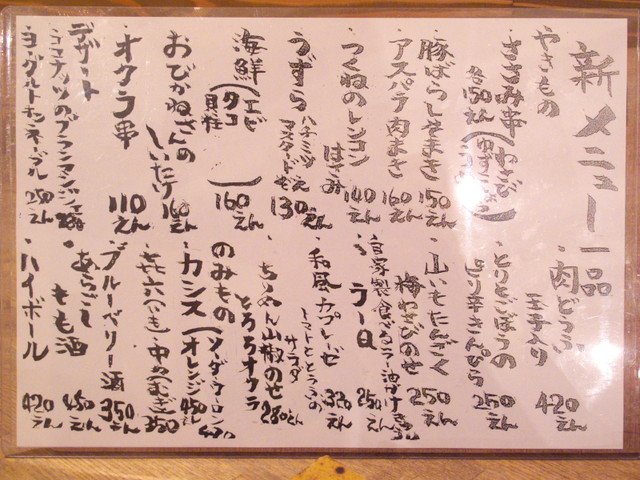 新メニュー一品
やきもの
ささみ串(わさび
ゆずこしょう)
各150えん
豚ばらしそまき 150えん
アスパラ肉まき 160えん
つくねのレンコンはさみ 140えん
うずら ハチミツマスタード 130えん
海鮮(エビ
タコ
貝柱) 160えん
おびかねさんのしいたけ 160えん
オクラ串 110えん
デザート
ココナッツのブランマンジェ
ヨーグルト 250えん
・肉どうふ
玉子入り 420えん
・とりとごぼうの
ピリ辛きんぴら 250えん
・山いもたんざく
梅わさびのせ 250えん
自家製食べるラー油
・ラーQ 250えん
・和風カプレーゼ
トマトととうふの
サラダ 320えん
・ちりめん山椒のせ
とろろオクラ 280えん
のみもの
カシス(ソーダ ウーロン
オレンジ 450えん
・ブルーベリー酒 350えん
・あらごし
もも酒 450えん
・ハイボール 420えん